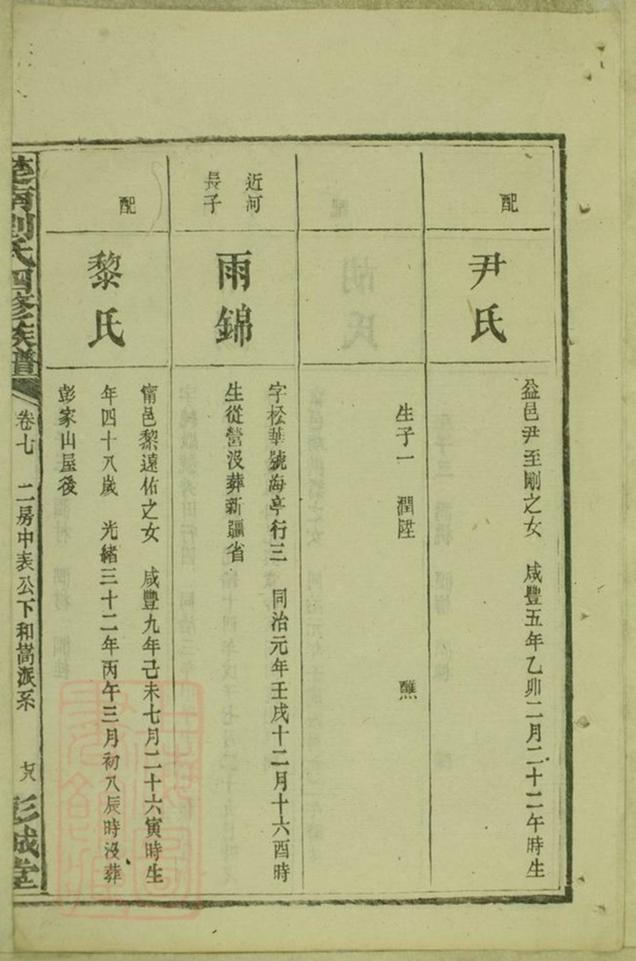 配
尹氏
益邑尹至剛之女　咸豐五年乙卯二月二十二午時生
生子一　潤陞　　　醮
近河
長子
雨錦
字松華號海亭行三　同治元年壬戌十二月十六酉時
生從營沒葬新疆省
配
黎氏
甯邑黎遠佑之女　咸豐九年己未七月二十六寅時生
年四十八歲　光緒三十二年丙午三月初八辰時沒葬
彭家山屋後
楚南劉氏四修族譜　卷七　二房中表公下和嵩派系　七八　彭城堂